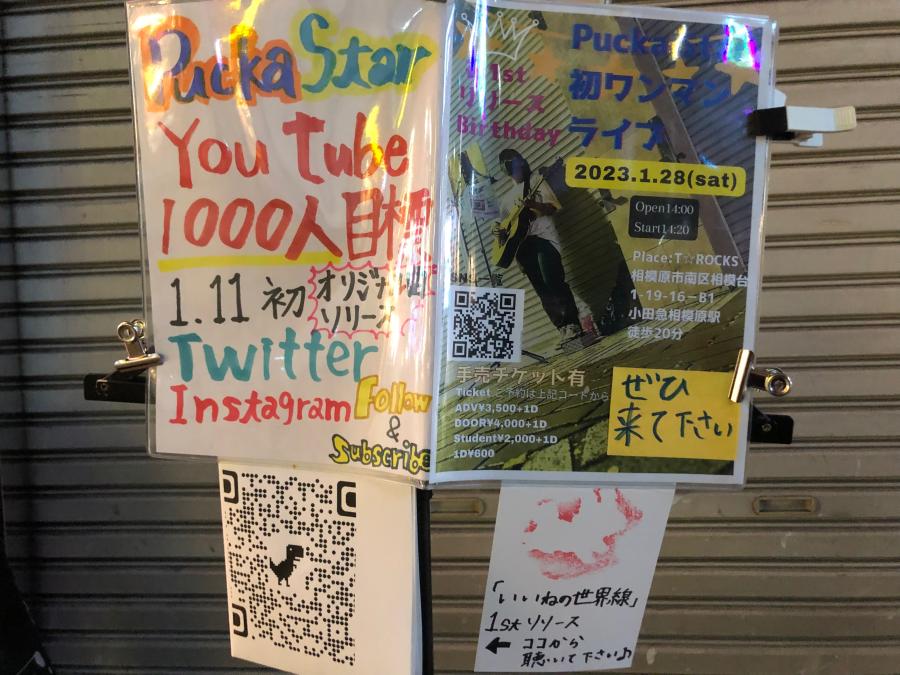 Pucka Star
You tube
1000人目標
1.11 初 オリジナル曲
リリース
Twitter
Instagram Follow
&
Subscribe
Pucka Star
1st
リリース
Birthday
初ワンマン
ライブ
2023.1.28(sat)
Open14:00
Start14:20
Place:T☆ROCKS
相模原市南区相模台
1-19-16-B1
小田急相模原駅
徒歩20分
SNS一覧
手売チケット有
Ticket ご予約は上記コードから
ADV¥3,500+1D
DOOR¥4,000+1D
Student¥2,000+1D
1D¥600
ぜひ
来て下さい
「いいねの世界線」
1st リリース
← ココから
聴いて下さい♪